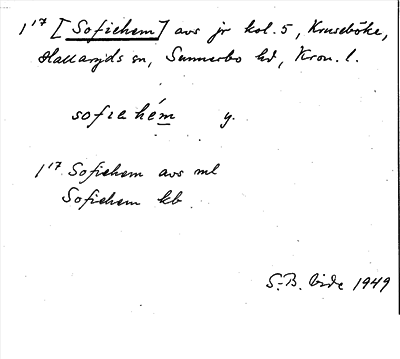 1¹⁷ [Sofiehem] avs jr kol. 5, Kruseböke,
Hallaryds sn, Sunnerbo hd, Kron. l.
sofiehém y.
1¹⁷ Sofiehem avs ml
Sofiehem kb
S.-B. 1949